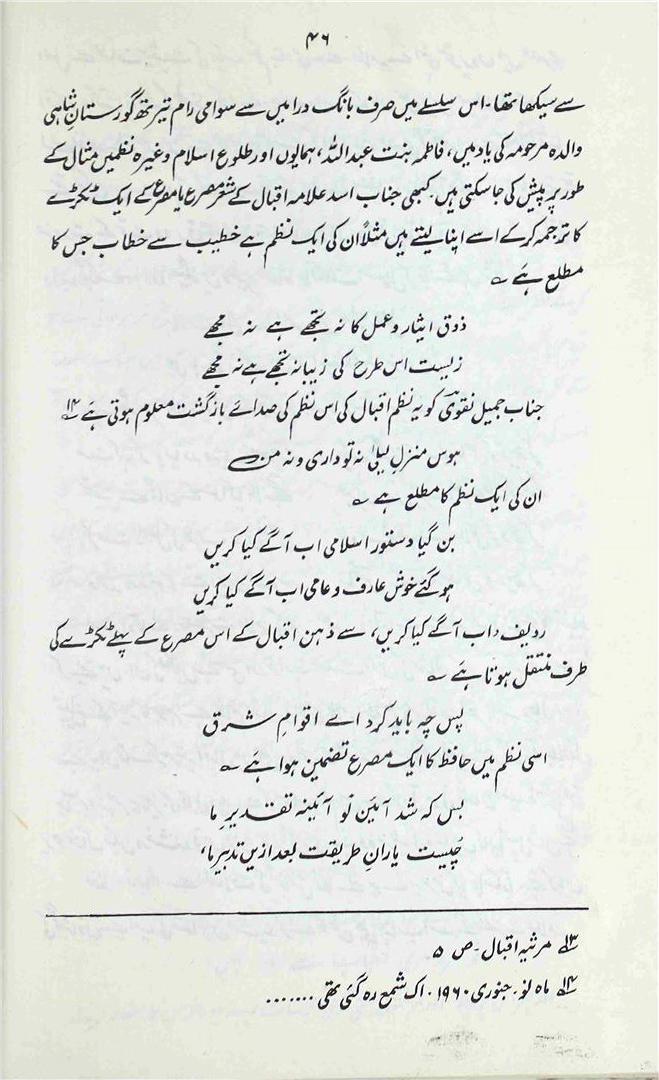 ۴۶
سے سیکھا تھا۔ اس سلسلے میں صرف بانگ درا میں سے سوامی رام تیرتھ گورستانِ شاہی
والدہ مرحومہ کی یاد میں، فاطمہ بنت عبداللہ، ہمایوں اور طلوع اسلام وغیرہ نظمیں مثال کے
طور پر پیش کی جا سکتی ہیں۔ کبھی جناب اسد علامہ اقبال کے شعر مصرع یا مصرع کے ایک ٹکڑے
کا ترجمہ کر کے اسے اپنا لیتے ہیں مثلاً ان کی ایک نظم ہے خطیب سے خطاب جس کا
مطلع ہے ؎
ذوق ایثار و عمل کا نہ تجھے ہے نہ مجھے
زلیست اس طرح کی زیبا نہ تجھے ہے نہ مجھے
جناب جمیل نقوی کو یہ نظم اقبال کی اس نظم کی صدائے بازگشت معلوم ہوتی ہے ۱۴؎
ہوس منزل لیلیٰ نہ تو داری و نہ من
ان کی ایک نظم کا مطلع ہے ؎
بن گیا دستور اسلامی اب آگے کیا کریں
ہو گئے خوش عارف و عامی اب آگے کیا کریں
ردیف، اب آگے کیا کریں، سے ذہن اقبال کے اس مصرع کے پہلے ٹکڑے کی
طرف منتقل ہوتا ہے ؎
پس چہ باید کرد اے اقوامِ شرق
اسی نظم میں حافظ کا ایک مصرع تضمین ہوا ہے ؎
بس کہ شد آئین نو آئینہ تقدیرِ ما
چیست یارانِ طریقت بعد ازیں تدبیر ما،
۱۳؎ مرثیہ اقبال۔ ص ۵
۱۴؎ ماہ نو۔ جنوری ۱۹۶۰۔ اک شمع رہ گئی تھی .......